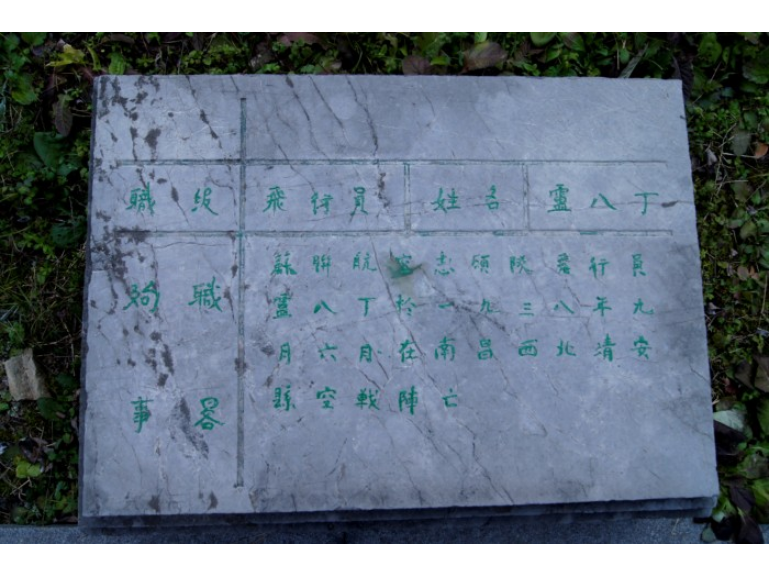 職級 飛行員 姓名 靈八丁
殉職事畧
蘇聯航空志願隊飛行員
靈八丁於一九三八年九
月六日在南昌西北靖安
縣空戰陣亡